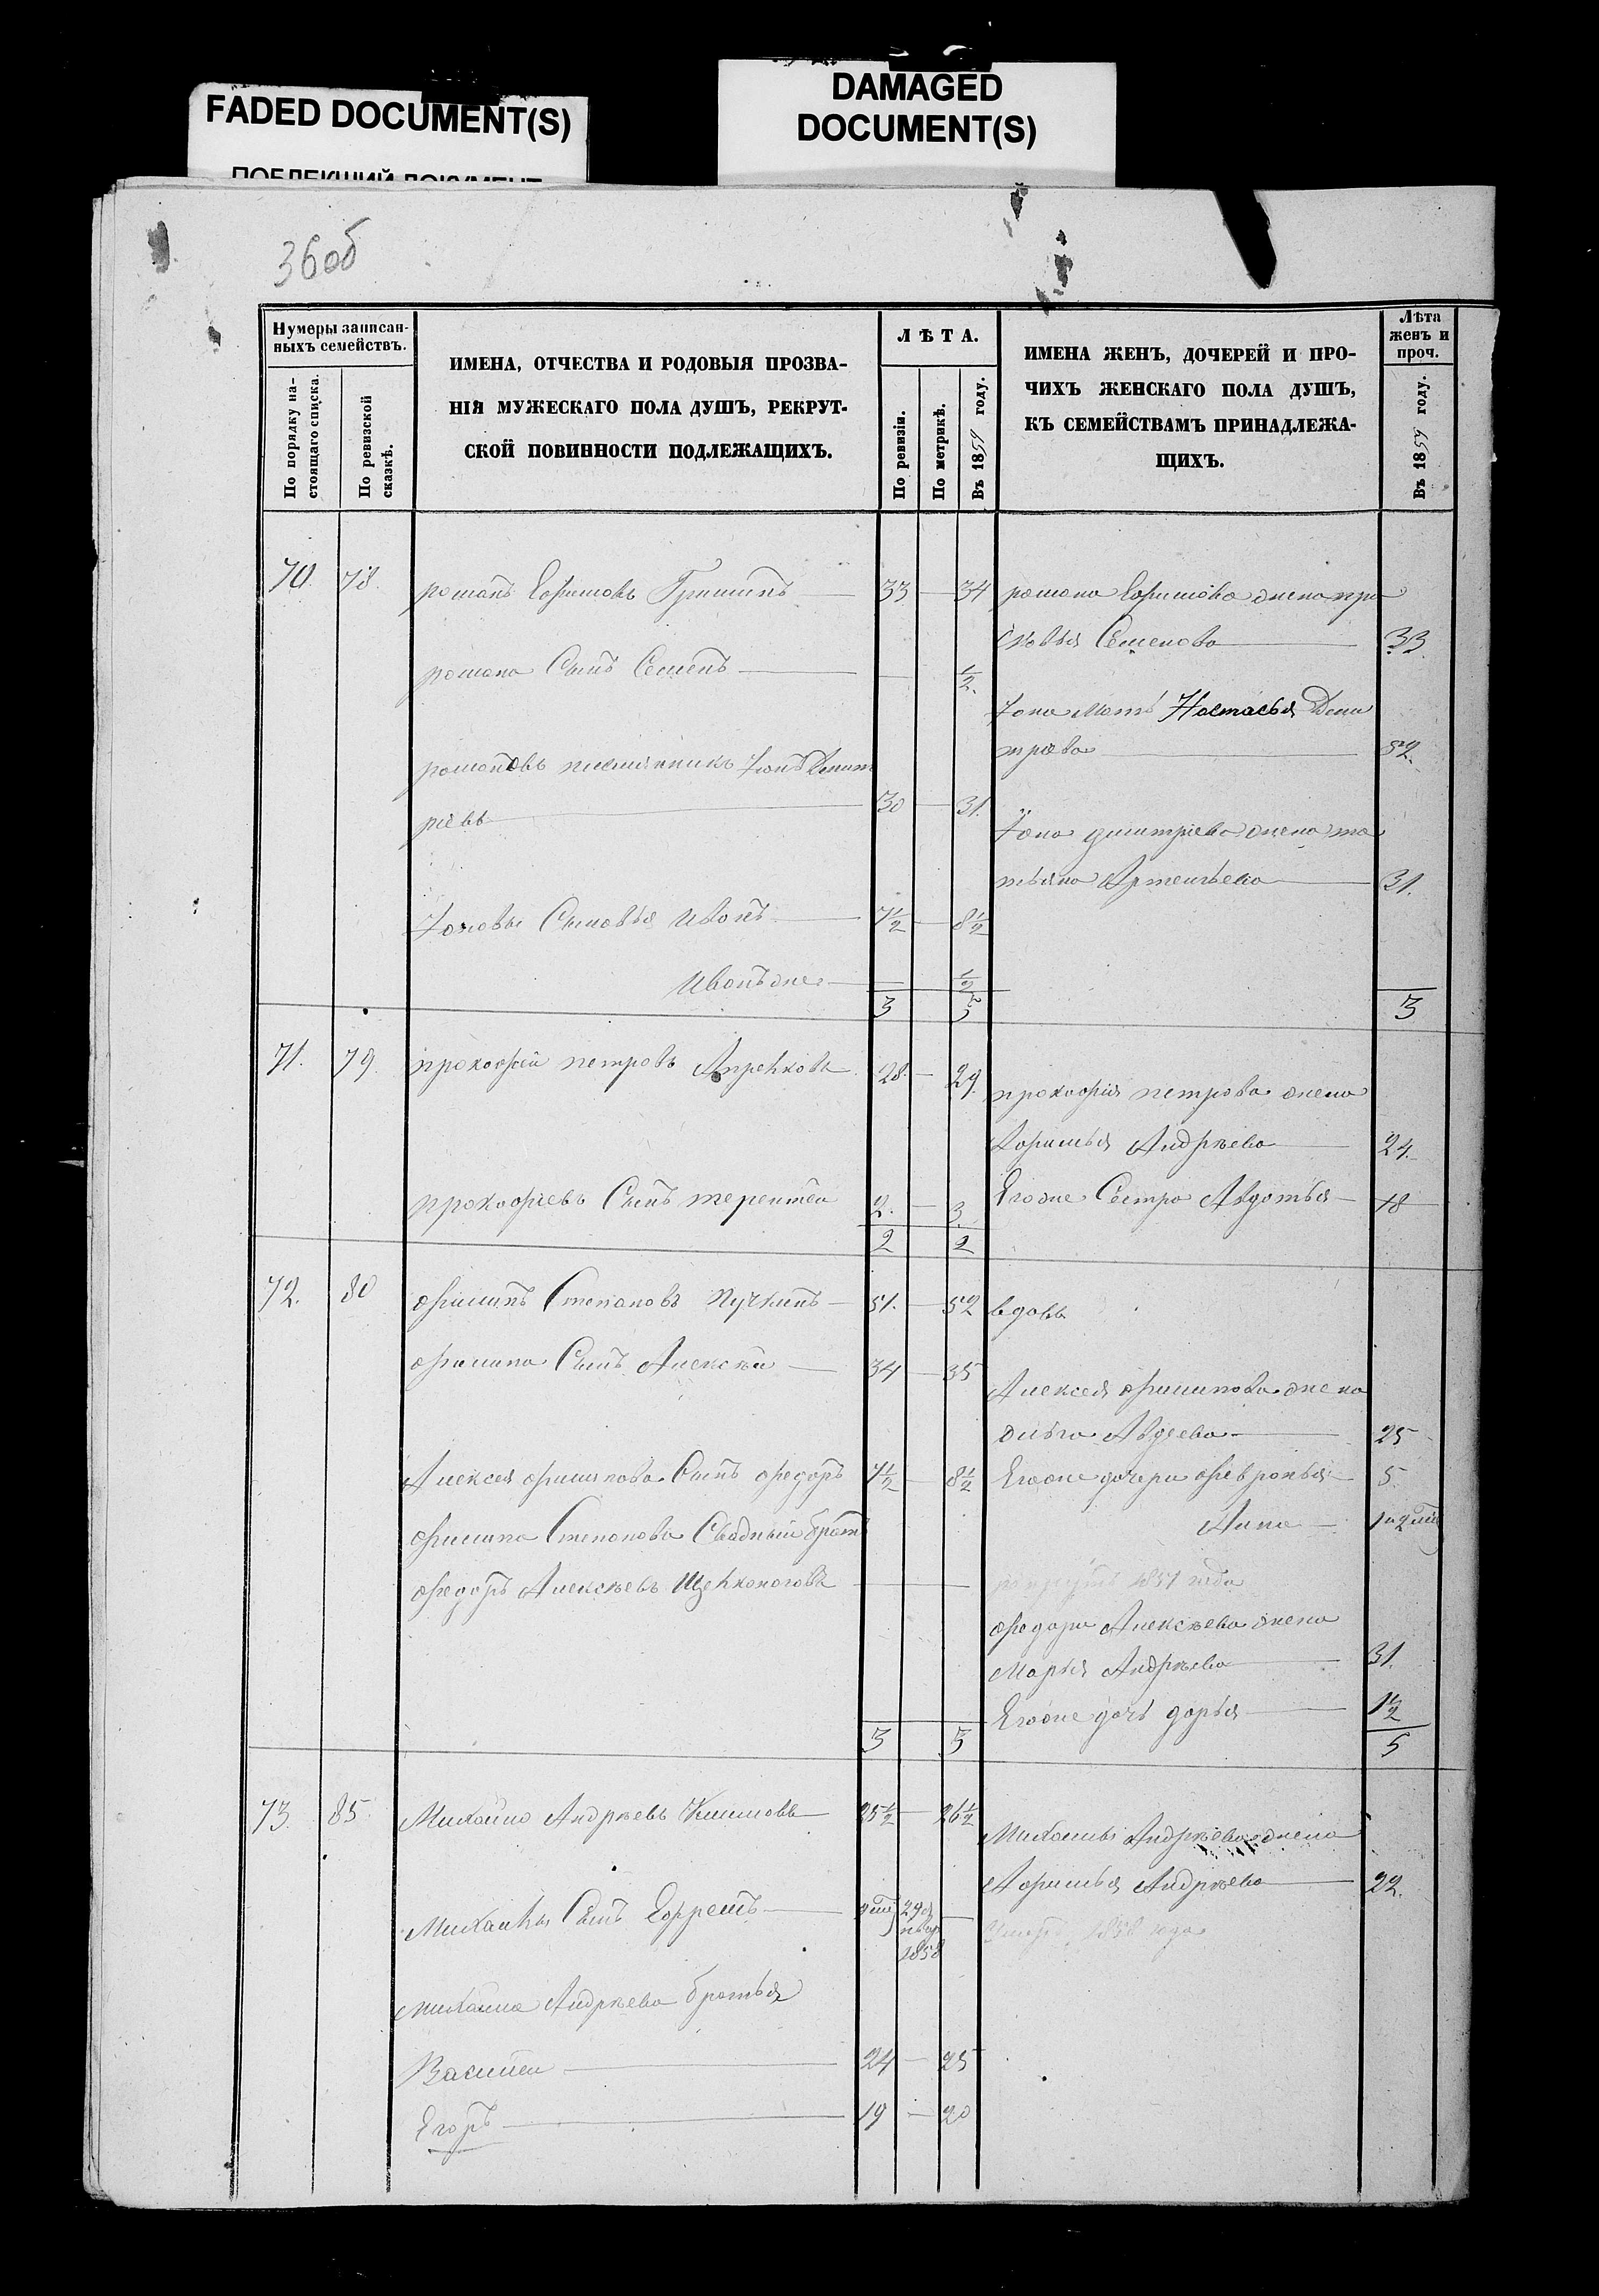 FADED DOCUMENT(S)
ПОБЛЕКШИЙ ДОКУМЕНТ
DAMAGED
DOCUMENT(S)
36об
Нумеры записан-
ныхъ семействъ.
По порядку на-
стоящаго списка.
По ревизской
сказкѣ.
ИМЕНА, ОТЧЕСТВА И РОДОВЫЯ ПРОЗВА-
НІЯ МУЖЕСКАГО ПОЛА ДУШЪ, РЕКРУТ-
СКОЙ ПОВИННОСТИ ПОДЛЕЖАЩИХЪ.
ЛѢТА.
По ревизіи.
По метрикѣ.
Въ 1859 году.
ИМЕНА ЖЕНЪ, ДОЧЕРЕЙ И ПРО-
ЧИХЪ ЖЕНСКАГО ПОЛА ДУШЪ,
КЪ СЕМЕЙСТВАМЪ ПРИНАДЛЕЖА-
ЩИХЪ.
Лѣта
женъ и
проч.
Въ 1859 году.
70. 78. романъ Ефимовъ Гришинъ 33 — 34 романа Ефимова жена пра
сковья Семенова 33
романа Сынъ Семенъ — ½.
Iона мать Настасья Дми
трева 52.
романовъ племянникъ Iонъ Дмит
ріевъ 30 — 31.
Iона дмитріева жена та
тьяна Артемьева 31.
Iоновы Сыновья Иванъ 7½ — 8½
Иванъ же — ½
3 5 3
71. 79. прокофей петровъ 28. — 29.
прокофія петрова жена
Афимья Андрѣева 24.
прокофіевъ Сынъ терентей 2. — 3.
Егоже Сестра Авдотья 18
2 2
72. 80 филипъ Степановъ Пучкинъ 51. — 52 вдовъ
филипа Сынъ Алексѣй 34 — 35
Алексея филипова жена
Ольга Авдеева 25
Алексея филипова Сынъ федоръ 7½ — 8½ Егоже дочери февронья 5
Анна 1 и 2 мѣ
филипа Степанова Сводный братъ
федоръ Алексѣевъ — рекрутъ 1851 года
федора Алексѣева жена
Марья Андрѣева 31.
Егоже дочь дарья 1½
3 3 5
73. 85 Михайло Андрѣевъ Климовъ 25½ — 26½
Михаилы Андрѣева жена
Афимья Андрѣева 22.
Михайлы Сынъ Ефремъ 29 1858 — Умеръ 1858 года
михаила Андрѣева братья
Василей 24 — 25
Егоръ 19 — 20